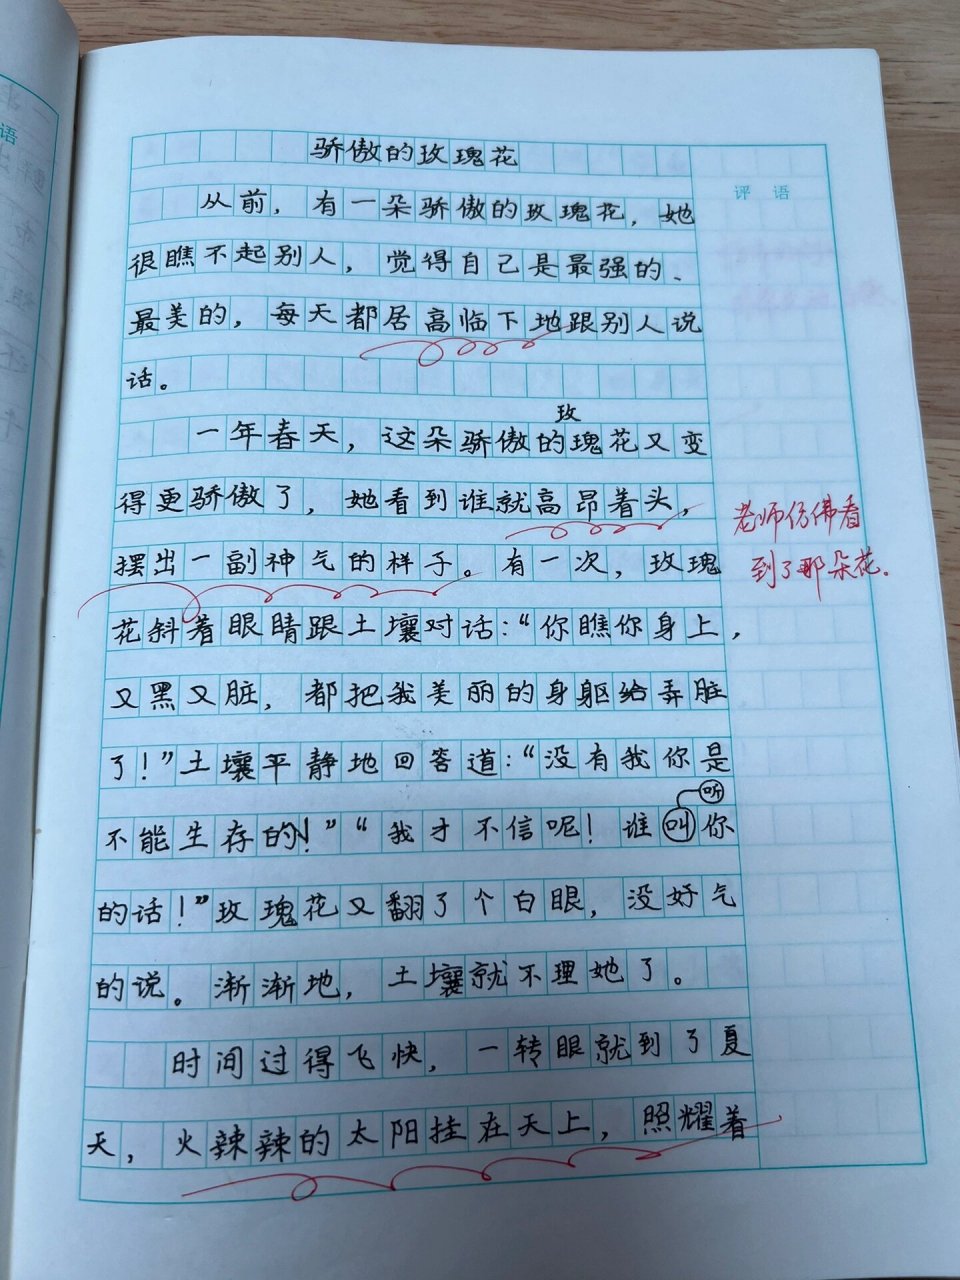 骄傲的玫瑰花
评 语
从前，有一朵骄傲的玫瑰花，她
很瞧不起别人，觉得自己是最强的、
最美的，每天都居高临下地跟别人说
话。
玫
一年春天，这朵骄傲的瑰花又变
得更骄傲了，她看到谁就高昂着头，
老师仿佛看
摆出一副神气的样子。有一次，玫瑰
到了那朵花.
花斜着眼睛跟土壤对话：“你瞧你身上，
又黑又脏，都把我美丽的身躯给弄脏
了！”土壤平静地回答道：“没有我你是
听
不能生存的！”“我才不信呢！谁叫你
的话！”玫瑰花又翻了个白眼，没好气
的说。渐渐地，土壤就不理她了。
时间过得飞快，一转眼就到了夏
天，火辣辣的太阳挂在天上，照耀着
语